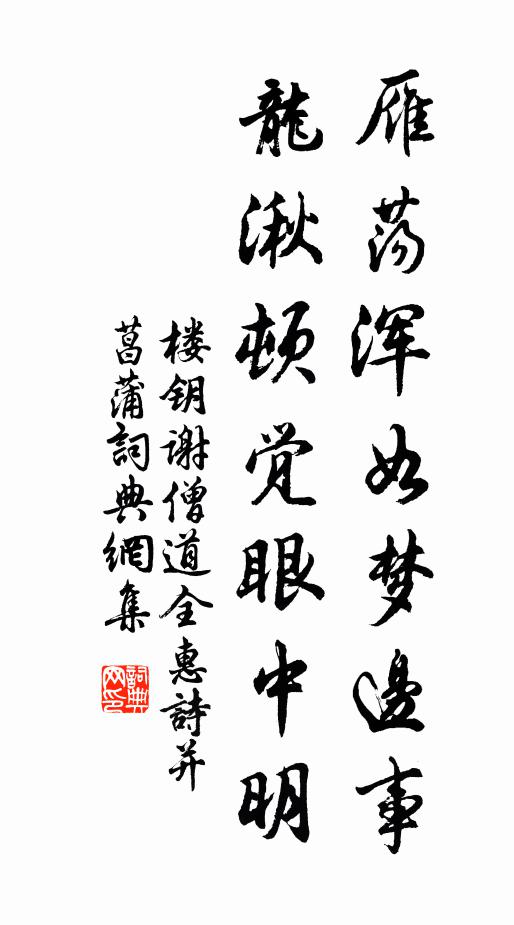 雁荡浑如梦邊事
龍湫顿觉眼中明
楼钥谢僧道全惠詩并
菖蒲詞典網集
詞典网印